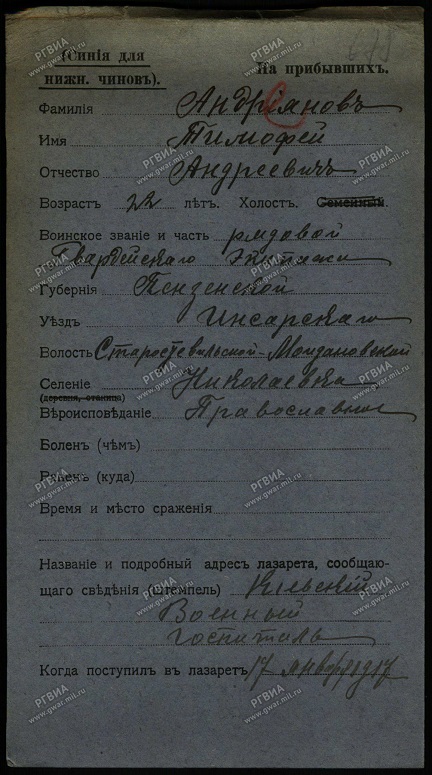 (Синія для
нижн. чиновъ).
На прибывшихъ.
Фамилія Андріяновъ
Имя Тимофей
Отчество Андреевичъ
Возрастъ 22 лѣтъ. Холостъ. Семейный.
Воинское званіе и часть рядовой
Гвардейскаго Экипажа
Губернія Пензенской
Уѣздъ Инсарскаго
Волость Майдановской
Селеніе Николаевка
(деревня, станица)
Вѣроисповѣданіе Православное
Боленъ (чѣмъ)
Раненъ (куда)
Время и мѣсто сраженія
Названіе и подробный адресъ лазарета, сообщаю-
щаго свѣдѣнія (штемпель) Кіевскій
Военный
госпиталь
Когда поступилъ въ лазаретъ 17 января 917
РГВИА
www.gwar.mil.ru